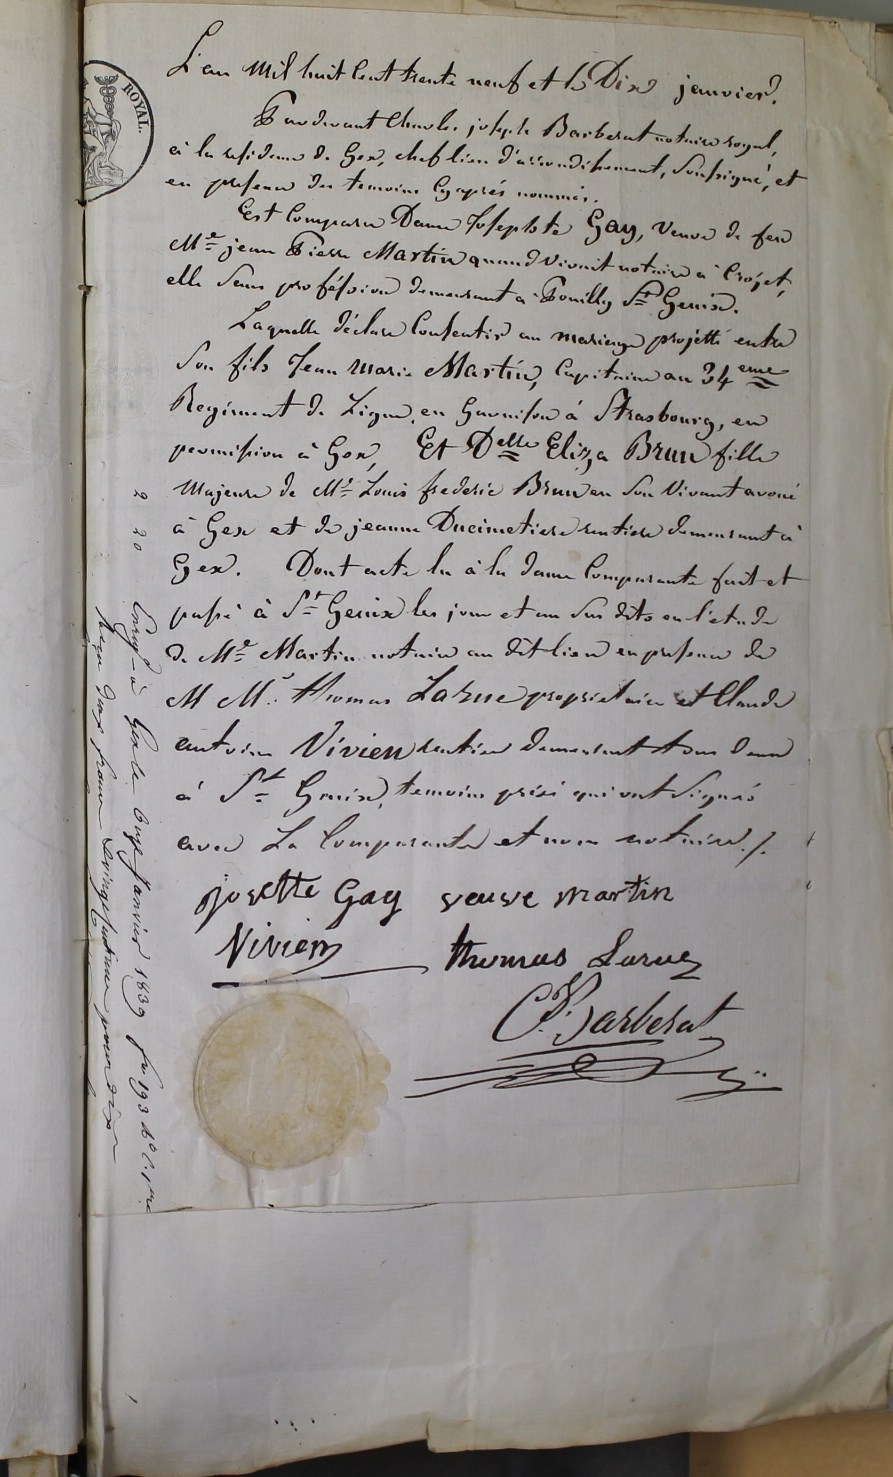 ROYAL.
L'an mil huit cent trente neuf et le Dix janvier.
Pardevant Charles joseph Barberat notaire royal,
à la residence de Gex, chef lieu d'arrondissement, soussigné, et
en presence des temoins cy après nommés.
Est Comparu Dame Josephte Gay, veuve de feu
Me jean Pierre Martin quand vivoit notaire à Crozet,
elle sans proféssion demeurant à Pouilly St Genix.
Laquelle déclare Consentir au mariage projetté entre
Son fils Jean Marie Martin, Capitaine au 34eme
Regiment de Ligne, en Garnison à Strasbourg, en
permission à Gex, Et Delle Eliza Brun fille
Majeure de Mr Louis frederic Brun en Son Vivant avoué
à Gex et de jeanne Ducimetiere rentiere demeurant à
Gex. Dont acte lu à la dame Comparante fait et
passé à St Genix les jour et an Sus dits en l'etude
de Me Martin notaire au dit lieu en presence de
M Mrs thomas Larue proprietaire et Claude
antoine Vivien rentier demeurant tous deux
à St Genix, temoins priés qui ont Signés
avec La Comparante et nous notaire ./.
josette Gay veuve martin
Vivien thomas Larue
Ch. Barberat
2 20
Enregé à Gex le onze Janvier 1839 fo 193 Ro C. 1ere
Reçu deux francs vingt centimes pour dixe